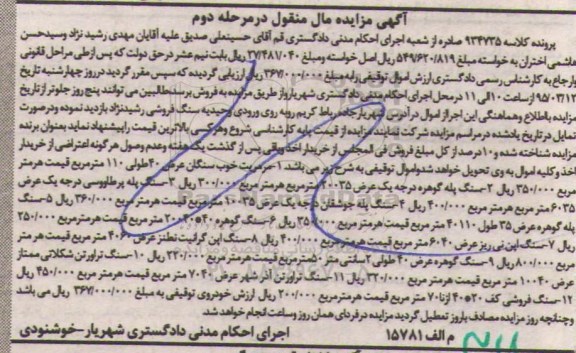 آگهی مزایده مال منقول در مرحله دوم
پرونده کلاسه ۹۳۴۷۳۵ صادره از شعبه اجرای احکام مدنی دادگستری قم آقای حسینعلی صدیق علیه آقایان مهدی رشید نژاد وسیدحسن
هاشمی اختران به خواسته مبلغ ۵۴۹/۶۲۰/۸۱۹ ریال اصل خواسته ومبلغ ۲۷/۴۸۱/۰۴۰ ریال بابت نیم عشر در حق دولت که پس ازطی مراحل قانونی
وارجاع به کارشناس رسمی دادگستری ارزش اموال توقیفی رابه مبلغ ۳۶۷/۰۰۰/۰۰۰ ریال ارزیابی گردیده که سپس مقرر گردید در روز چهارشنبه تاریخ
۹۵/۰۳/۱۲ ازساعت ۱۰ الی ۱۱ درمحل اجرای احکام مدنی دادگستری شهریار از طریق مزایده به فروش برسد طالبین می توانند پنج روز جلوتر از تاریخ
مزایده بااطلاع وهماهنگی این اجرا از اموال در آدرس شهریار جاده رباط کریم روبه روی ورودی وحیدیه سنگ فروشی رشیدنژاد بازدید نموده ودرصورت
تمایل در تاریخ یادشده در مراسم مزایده شرکت نمایند مزایده از قیمت پایه کارشناسی شروع وهرکسی بالاترین قیمت را پیشنهاد نماید بعنوان برنده
مزایده شناخته شده و۱۰درصد از کل مبلغ فروش فی المجلس از خریدار اخذ وباقی پس از گذشت یک هفته وعدم وصول هر گونه اعتراضی از خریدار
اخذ و کلیه اموال به وی تحویل خواهد شد واموال توقیفی به شرح زیر می باشد ۱-مرمریت خوب سنگان عرض ۴۰ طولی ۱۱۰ مترمربع قیمت هرمتر
مربع ۳۵۰/۰۰۰ ریال ۲-سنگ پله گوهره درجه یک عرض ۳۵ ۶۰ مترمربع هرمتر مربع ۳۰۰/۰۰۰ ریال ۳-سنگ پله پرطاووسی درجه یک عرض
۳۵ ۶۰ متر مربع قیمت هرمتر مربع ۴۰۰/۰۰۰ ریال ۴-سنگ پله جوشقان درجه یک عرض ۳۵ ۱۰۰ متر مربع قیمت هرمترمربع ۲۶۰/۰۰۰ ریال ۵-سنگ
پله گوهره عرض ۳۵ طول ۱۱۰ ۴۰ متر مربع قیمت هرمتر مربع ۳۵۰/۰۰۰ ریال ۶-سنگ گوهره ۴۰*۴۰ ۲۰۰ متر مربع قیمت هرمترمربع ۲۵۰/۰۰۰
ریال ۷-سنگ اپن نی ریز عرض ۶۰ ۴۰ متر مربع قیمت هرمترمربع ۴۰۰/۰۰۰ ریال ۸-سنگ اپن گرانیت نطنز عرض ۶۰ ۴۰ متر مربع قیمت هر متر
مربع ۸۰۰/۰۰۰ ریال ۹-سنگ گوهره عرض ۴۰ طولی ۲سانتی متر ۵۰مترمربع قیمت هرمتر مربع ۲۲۰/۰۰۰ ریال ۱۰-سنگ تراورتن شکلاتی ممتاز
عرض ۴۰ ۱۰۰ متر مربع قیمت هرمتر مربع ۳۲۰/۰۰۰ ریال ۱۱-سنگ تراورتن آذر شهر عرض ۴۰ ۷۰ متر مربع قیمت هرمتر مربع ۴۵۰/۰۰۰ ریال
۱۲-سنگ فروشی کف ۲۰*۴۰ ازنا ۷۰ متر مربع قیمت هرمترمربع ۲۰۰/۰۰۰ ریال ارزش خودروی توقیفی به مبلغ ۳۶۷/۰۰۰/۰۰۰ ریال می باشد
وچنانچه روز مزایده مصادف باروز تعطیل گردید مزایده در فردای همان روز وساعت انجام خواهد شد.
م الف ۱۵۷۸۱ اجرای احکام مدنی دادگستری شهریار-خوشنودی